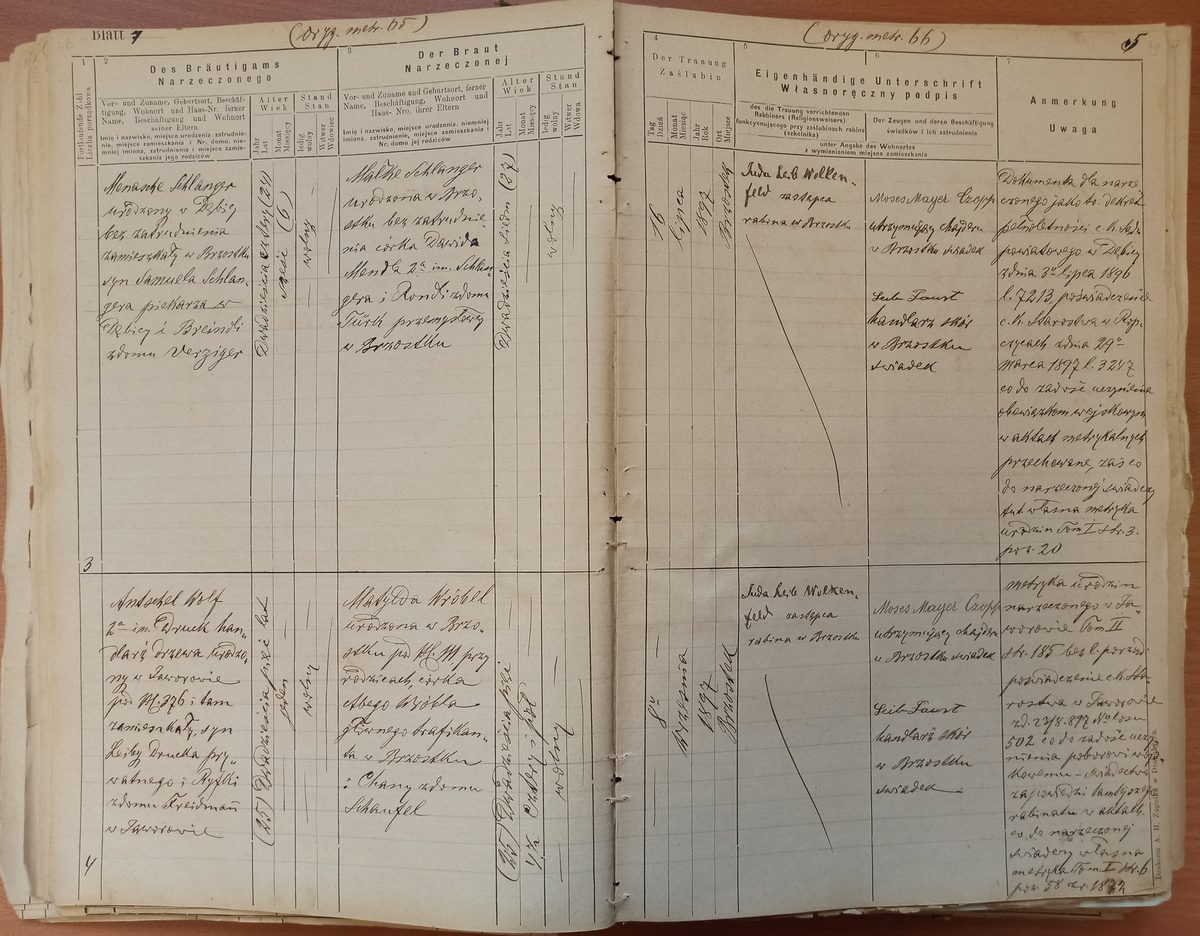 Blatt 7
(oryg. metr. 65)
(oryg. metr. 66)
5
1
Fortlaufende Zahl
Liczba porządkowa
2
Des Bräutigams
Narzeczonego
Vor- und Zuname, Geburtsort, Beschäf-
tigung, Wohnort und Haus-Nr. ferner
Name, Beschäftigung und Wohnort
seiner Eltern
Imię i nazwisko, miejsce urodzenia, zatrudnie-
nie, miejsce zamieszkania i Nr. domu, nie-
mniej imiona, zatrudnienie i miejsce zamie-
szkania jego rodziców
Alter
Wiek
Jahr
Lat
Monat
Miesięcy
Stand
Stan
ledig
wolny
Witwer
Wdowiec
3
Der Braut
Narzeczonej
Vor- und Zuname und Geburtsort, ferner
Name, Beschäftigung, Wohnort und
Haus- Nro. ihrer Eltern
Imię i nazwisko, miejsce urodzenia, niemniej
imiona, zatrudnienie, miejsce zamieszkania i
Nr. domu jej rodziców
Alter
Wiek
Jahr
Lat
Monat
Miesięcy
Stand
Stan
ledig
wolny
Witwer
Wdowa
4
Der Trauung
Zaślubin
Tag
Dzień
Monat
Miesiąc
Jahr
Rok
Ort
Miejsce
5
6
Eigenhändige Unterschrift
Własnoręczny podpis
des die Trauung verrichtenden
Rabbiners (Religionsweisers)
funkcyonującego przy zaślubinach rabina
(szkolnika)
Der Zeugen und deren Beschäftigung
świadków i ich zatrudnienie
unter Angabe des Wohnortes
z wymienieniem miejsca zamieszkania
7
Anmerkung
Uwaga
3
Menasche Schlanger
urodzony w Dębicy
bez zatrudnienia
zamieszkały w Brzostku
syn Samuela Schlan-
gera piekarza w
Dębicy i Breindli
z domu Verziger
Dwadzieścia cztery (24)
sześć (6)
wolny
Malke Schlanger
urodzona w Brzo-
stku bez zatrudnie-
nia córka Dawida
Mendla 2a im. Schlan-
gera i Rondli z domu
Türk przemysłowcy
w Brzostku
Dwadzieścia siedm (27)
wolny
16
lipca
1897
Brzostek
Juda Leib Wolken-
feld zastępca
rabina w Brzostku
Moses Mayer Czopp
utrzymujący chajderu
w Brzostku świadek
Leib Faust
handlarz skór
w Brzostku
świadek
Dokumenta dla narze
czonego jako to: dekret
pełnoletności c.k. Sądu
powiatowego w Dębicy
z dnia 3go lipca 1896
l. 7213 poświadczenie
c.k. Starostwa w Rop-
czycach z dnia 29go
marca 1897 l. 3247
co do zadość uczynienia
obowiązkom wojskowym
w aktach metrykalnych
przechowane, zaś co
do narzeczonej świadczy
tut. własna metryka
urodzin Tom I str. 3.
poz. 20
4
Antschel Wolf
2a im. Druck han-
dlarz drzewa urodzo-
ny w Jaworowie
pod Nr. 376 i tam
zamieszkały, syn
Leiby Drucka pry-
watnego i Ryfki
z domu Freidmann
w Jaworowie
(25) Dwadzieścia pięć lat
jeden
wolny
Matylda Wróbel
urodzona w Brzo-
stku pod przy
rodzicach, córka
Abego Wróbla
głównego trafikan-
ta w Brzostku
i Chany z domu
Schaufel
(25) Dwadzieścia pięć
4½ cztery i pół
wolny
8go
Września
1897
Brzostek
Juda Leib Wolken-
feld zastępca
rabina w Brzostku
Moses Mayer Czopp
utrzymujący chajderu
w Brzostku świadek
Leib Faust
handlarz skór
w Brzostku
świadek
metryka urodzin
narzeczonego w Ja-
worowie Tom II
str. 185 bez l. porządk.
poświadczenie c.k. Sta-
rostwa w Jaworowie
z d. 23/8 897 No losu
502 co do zadość uczy-
nienia poborowi woj-
skowemu - świadectwo
zapowiedzi tamtejszego
rabinatu w aktach.
co do narzeczonej
świadczy własna
metryka Tom I str. 6
poz. 58 ex 1872
Drukiem A. H. Żupnika w Drohobyczu.